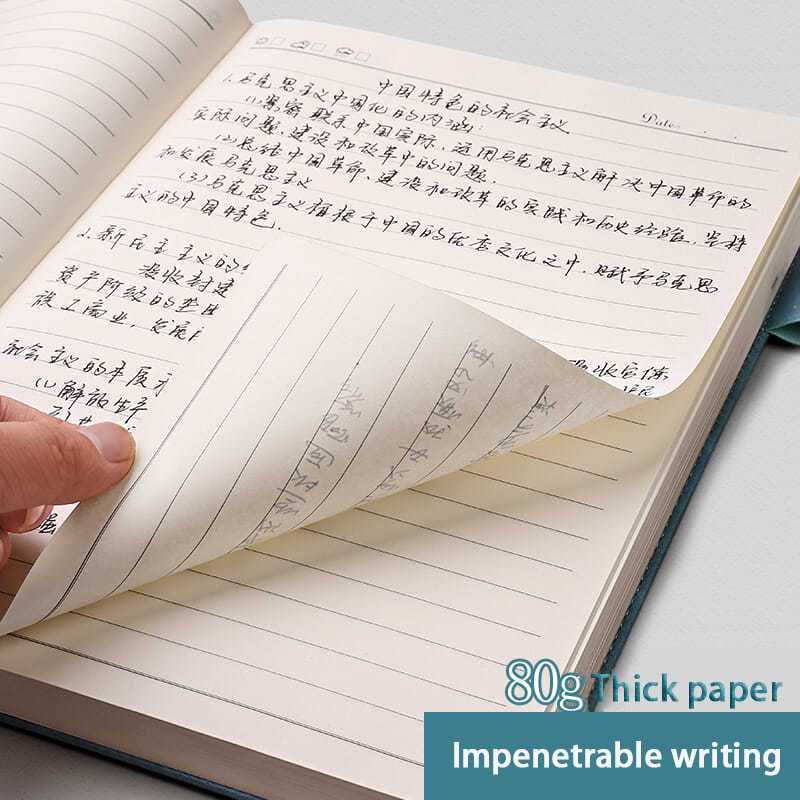 中国特色的社会主义
Date:
1.马克思主义中国化的内涵:
(1)紧密联系中国实际、运用马克思主义解决中国革命的
实际问题、建设和改革中的问题.
(2)总结中国革命、建设和改革的实践和历史经验，坚持
和发展马克思主义
(3)马克思主义植根于中国的优秀文化之中，赋予马克思
主义的中国特色.
2.新民主主义的
没收封建
资产阶级的
族工商业，发展
社会主义的本
(1)解放生产
80g Thick paper
Impenetrable writing